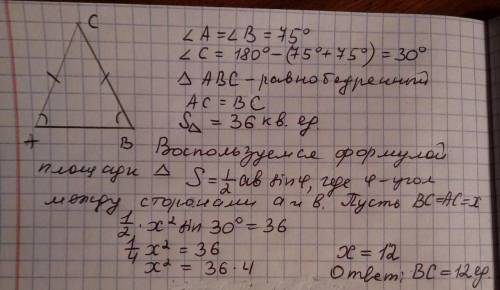 C
A B
∠A = ∠B = 75°
∠C = 180° - (75° + 75°) = 30°
△ABC - равнобедренный
AC = BC
S△ = 36 кв. ед.
Воспользуемся формулой
площади △ S = 1/2 ab sin φ, где φ - угол
между сторонами a и b. Пусть BC = AC = x
1/2 · x² sin 30° = 36
1/4 x² = 36
x² = 36 · 4
x = 12
Ответ: BC = 12 ед